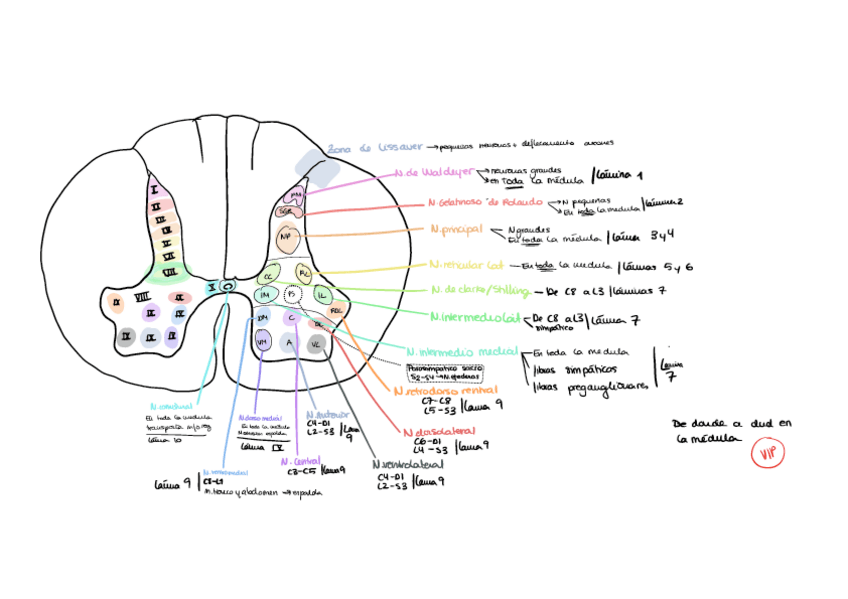 Zona de Lissauer → pequeñas neuronas + desflecamiento axones
N. de Waldeyer → neuronas grandes
→ en toda la médula / Lámina 1
N. Gelatinoso de Rolando → N pequeñas
En toda la medula / Lámina 2
N. principal N grandes
En toda la médula / Lámina 3 y 4
N. reticular Lat — En toda la medula / Láminas 5 y 6
N. de Clarke/Stilling — De C8 a L3 / Láminas 7
N. intermedio Lat De C8 a L3 / Lámina 7
simpático
N. intermedio medial En toda la medula
fibras simpáticos
fibras preganglionares
Lámina
7
Parasimpático sacro
S2-S4 → N. erectores
N. retrodorso
C7-C8
L5-S3 / Lámina 9
N. dorsolateral
C6-D1
L4-S3 / Lámina 9
N. ventrolateral
C4-D1
L2-S3 / Lámina 9
N. anterior
C4-D1
L2-S3 / Lámina
9
N. Central
C3-C5 / Lámina 9
N. dorso medial
En toda la médula
Lámina IX
En toda la medula
Lámina 10
Lámina 9
C8-L1
N. tronco y abdomen → espalda
De donde a
la médula
VIP
I
II
III
IV
V
VI
VII
VIII
IX
IX
IX
IX
IX
IX
IX
X
NP
CC
RL
IM
PS
IL
DM
C
DL
RDL
VM
A
VL